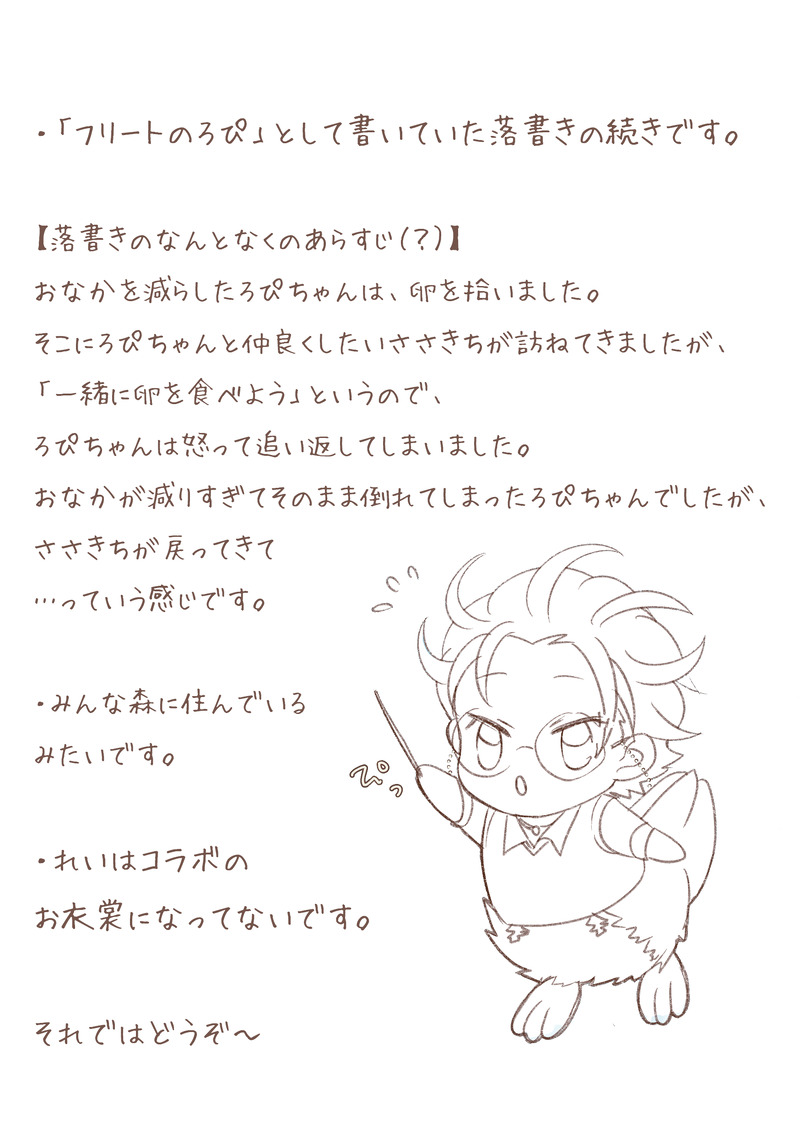 ・「フリートのろぴ」として書いていた落書きの続きです。
【落書きのなんとなくのあらすじ(?)】
おなかを減らしたろぴちゃんは、卵を拾いました。
そこにろぴちゃんと仲良くしたいささきちが訪ねてきましたが、
「一緒に卵を食べよう」というので、
ろぴちゃんは怒って追い返してしまいました。
おなかが減りすぎてそのまま倒れてしまったろぴちゃんでしたが、
ささきちが戻ってきて
…っていう感じです。
・みんな森に住んでいる
みたいです。
ぴっ
・れいはコラボの
お衣裳になってないです。
それではどうぞ〜